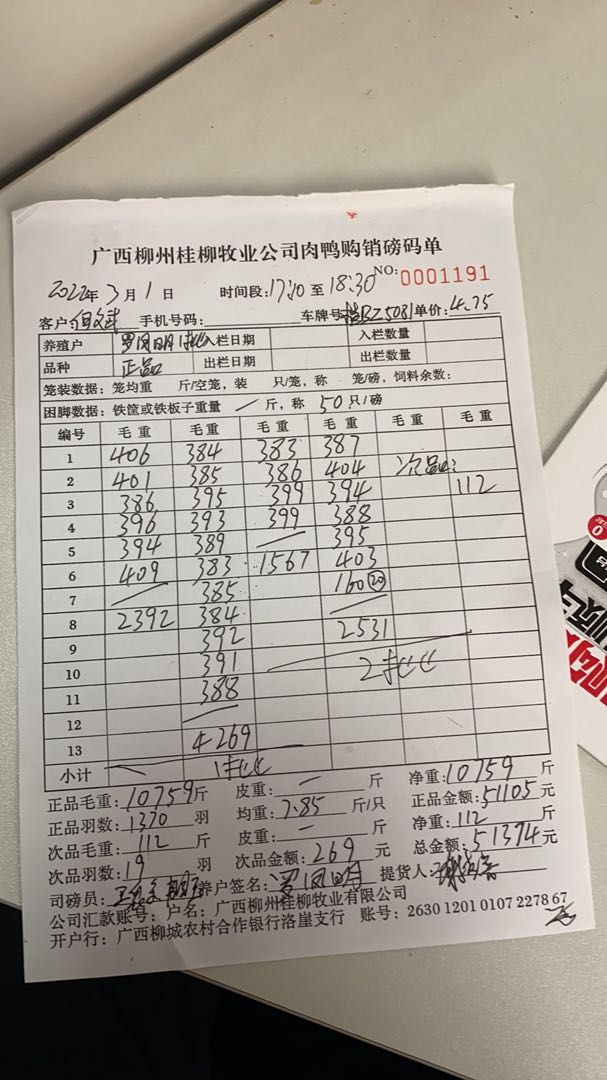 广西柳州桂柳牧业公司肉鸭购销磅码单
2022年 3月 1日 时间段:17:10 至 18:30 NO: 0001191
客户: 手机号码: 车牌号: 单价:4.75
养殖户 罗凤明 1批 入栏日期 入栏数量
品种 正品 出栏日期 出栏数量
笼装数据: 笼均重 斤/空笼, 装 只/笼, 称 笼/磅, 饲料余数:
困脚数据: 铁筐或铁板子重量 一 斤, 称 50 只/磅
编号 毛重 毛重 毛重 毛重 毛重 毛重
1 406 384 383 387
2 401 385 386 404 次品:
3 386 395 399 394 112
4 396 393 399 388
5 394 389 395
6 409 383 1567 403
7 385 160 20
8 2392 384
9 392 2531
10 391 2批
11 388
12
13 4269
小计 1批
正品毛重: 10759 斤 皮重: 一 斤 净重: 10759 斤
正品羽数: 1370 羽 均重: 7.85 斤/只 正品金额: 51105 元
次品毛重: 112 斤 皮重: 一 斤 净重: 112 斤
次品羽数: 19 羽 次品金额: 269 元 总金额: 51374 元
司磅员: 养户签名: 罗凤明 提货人:
公司汇款账号: 户名: 广西柳州桂柳牧业有限公司
开户行: 广西柳城农村合作银行洛崖支行 账号: 2630 1201 0107 2278 67